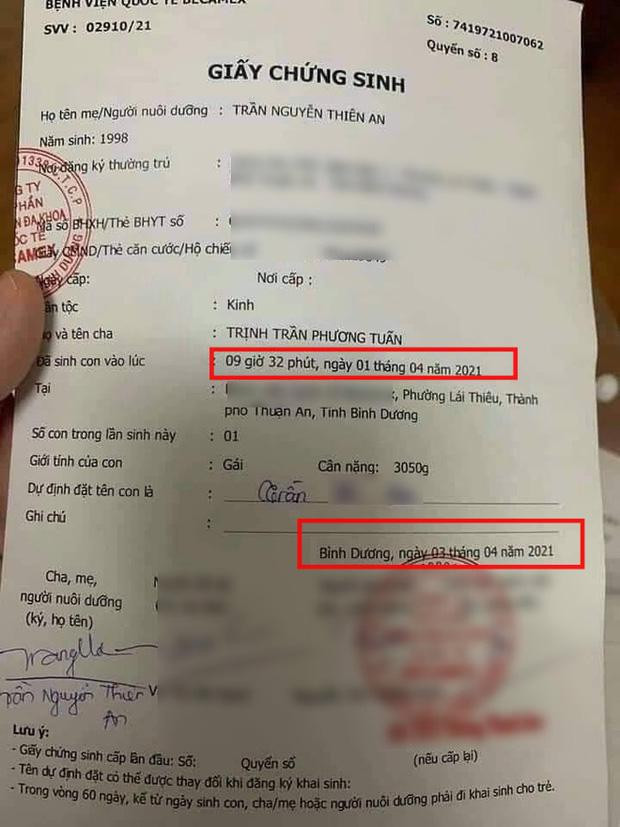 BỆNH VIỆN QUỐC TẾ BECAMEX
SVV : 02910/21
Số : 7419721007062
Quyển số : 8
GIẤY CHỨNG SINH
Họ tên mẹ/Người nuôi dưỡng : TRẦN NGUYỄN THIÊN AN
Năm sinh: 1998
Nơi đăng ký thường trú :
Mã số BHXH/Thẻ BHYT số :
Giấy CMND/Thẻ căn cước/Hộ chiếu
Ngày cấp: Nơi cấp :
Dân tộc : Kinh
Họ và tên cha : TRỊNH TRẦN PHƯƠNG TUẤN
Đã sinh con vào lúc : 09 giờ 32 phút, ngày 01 tháng 04 năm 2021
Tại : , Phường Lái Thiêu, Thành
phố Thuận An, Tỉnh Bình Dương
Số con trong lần sinh này : 01
Giới tính của con : Gái Cân nặng: 3050g
Dự định đặt tên con là :
Ghi chú :
Bình Dương, ngày 03 tháng 04 năm 2021
Cha, mẹ,
người nuôi dưỡng
(ký, họ tên)
Trần Nguyễn Thiên
An
Lưu ý:
- Giấy chứng sinh cấp lần đầu: Số: Quyển số (nếu cấp lại)
- Tên dự định đặt có thể được thay đổi khi đăng ký khai sinh:
- Trong vòng 60 ngày, kể từ ngày sinh con, cha/mẹ hoặc người nuôi dưỡng phải đi khai sinh cho trẻ.